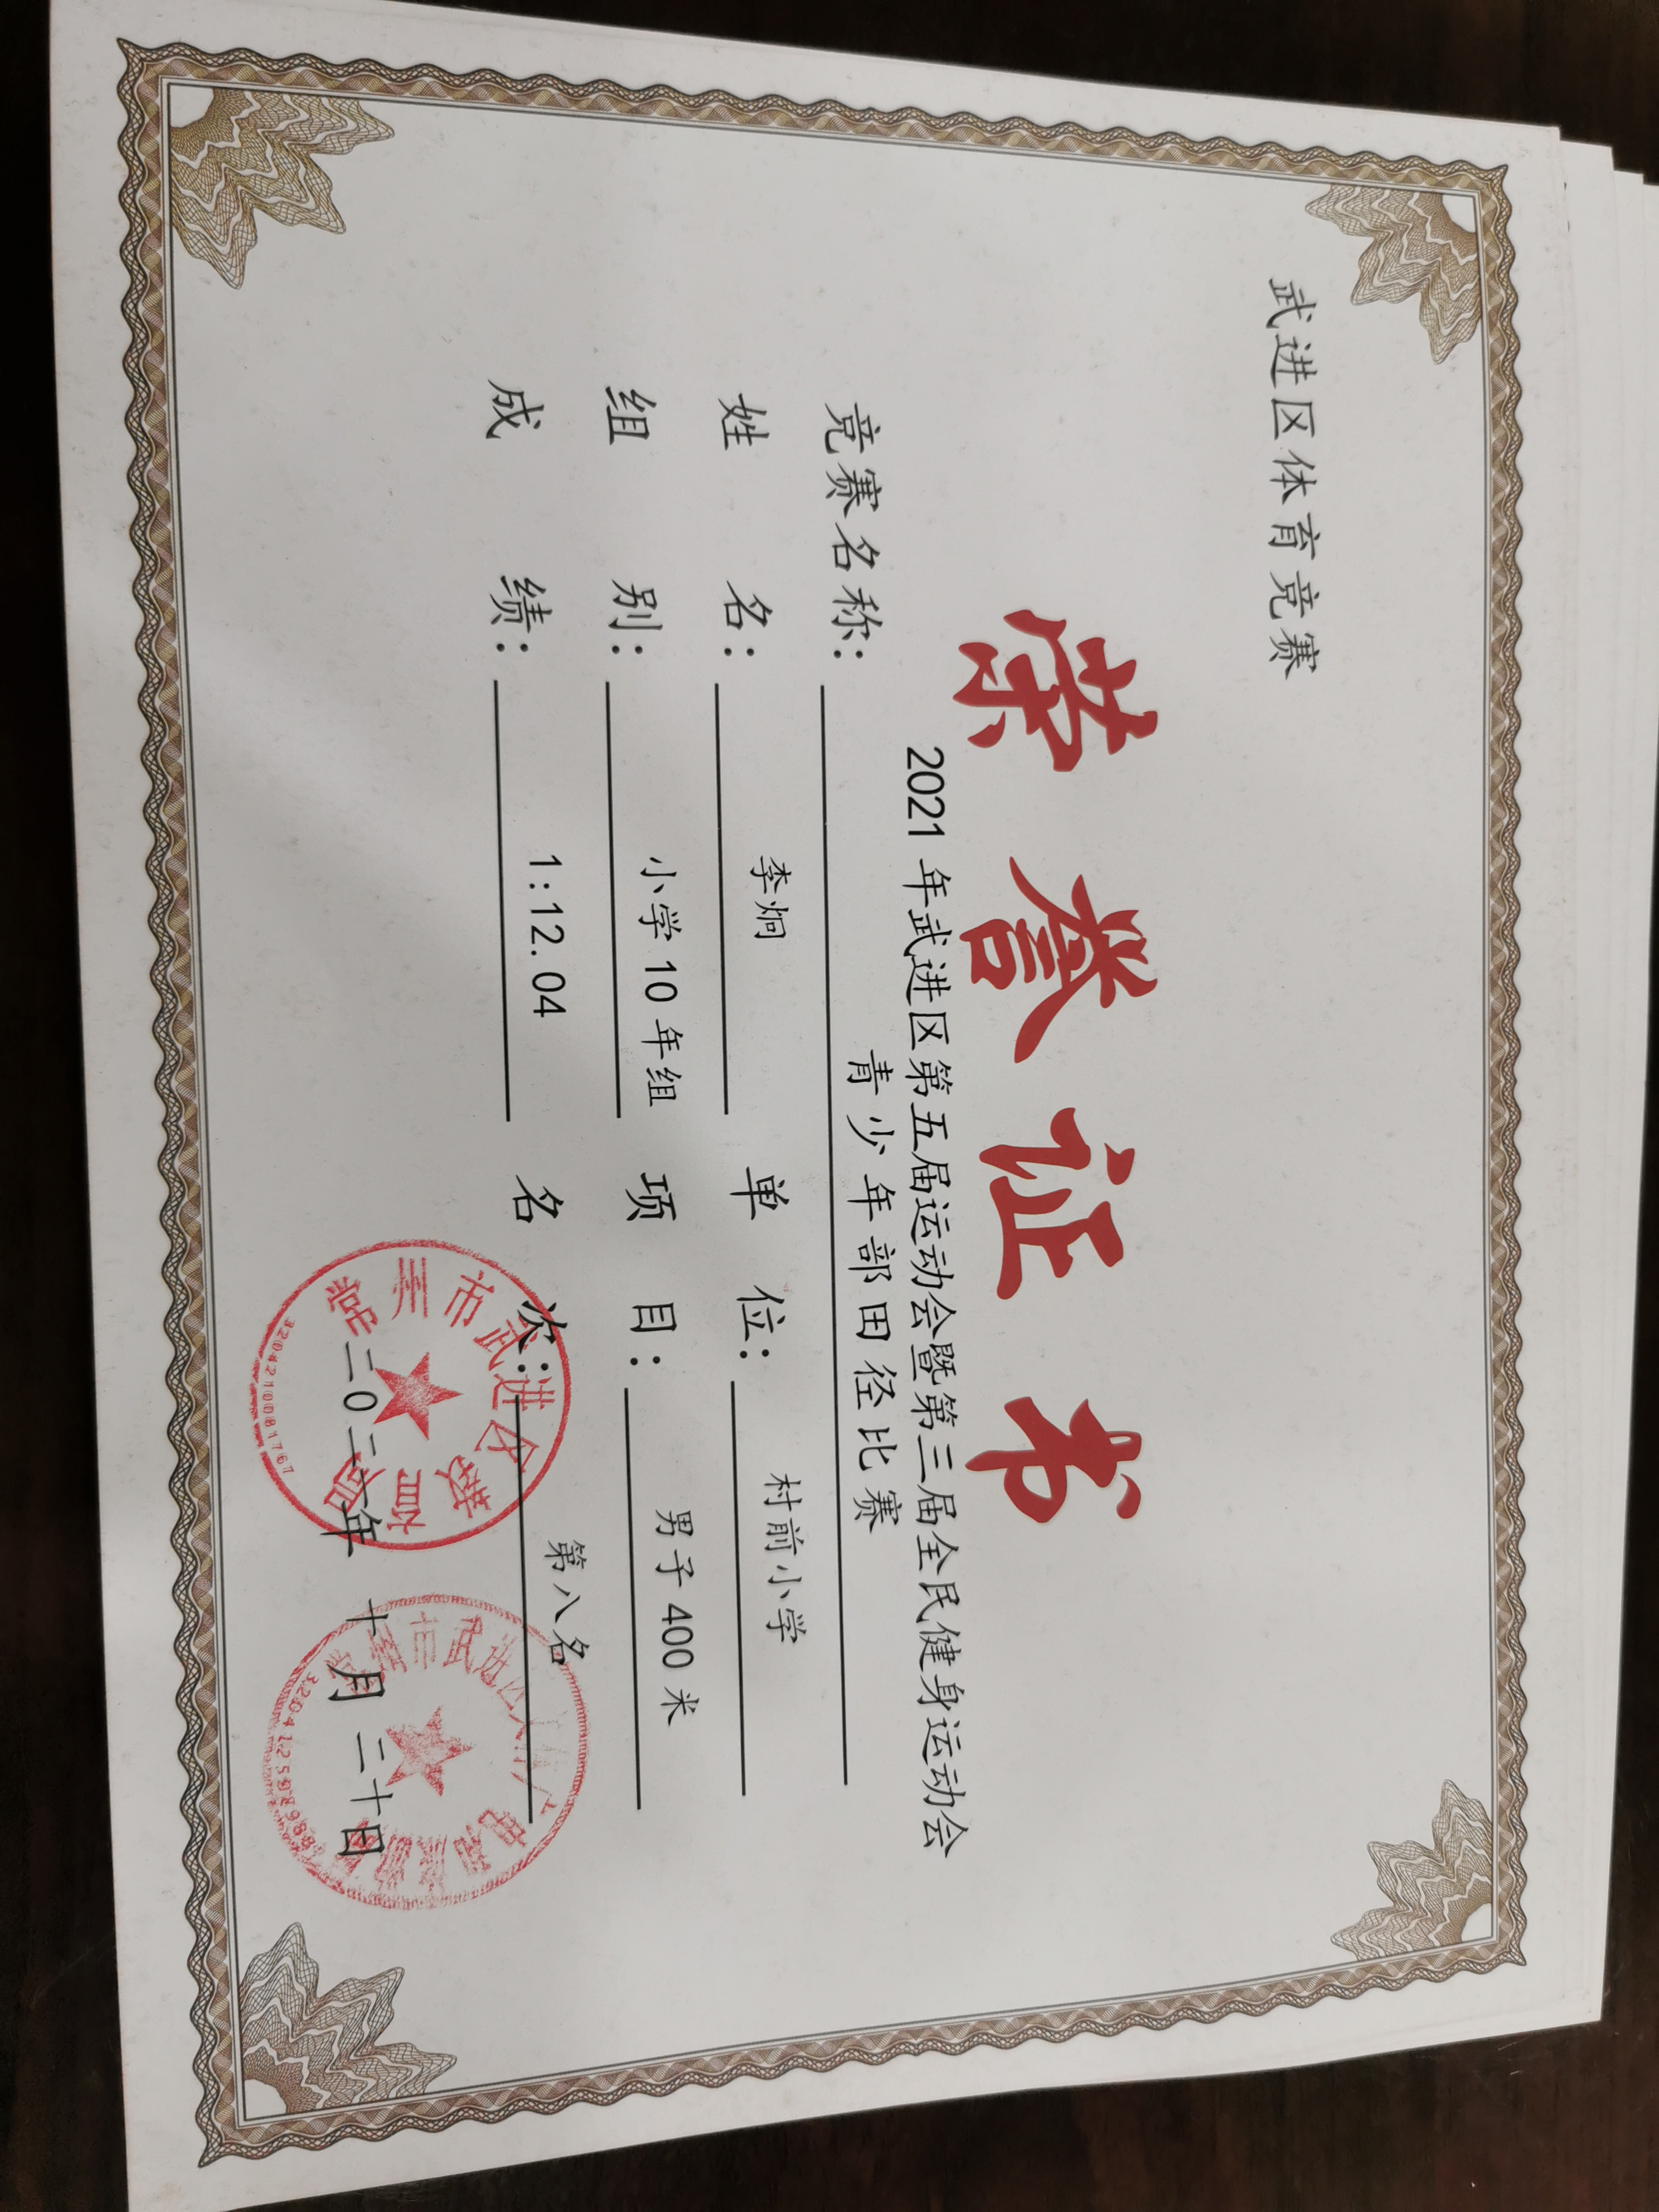 武进区体育竞赛
荣誉证书
2021年武进区第五届运动会暨第三届全民健身运动会
竞赛名称: 青少年部田径比赛
姓名: 李炯 单位: 村前小学
组别: 小学10年组 项目: 男子400米
成绩: 1:12.04 名次: 第八名
常州市武进区教育局
3204210081767
常州市武进区
二0二一年 十月 二十日